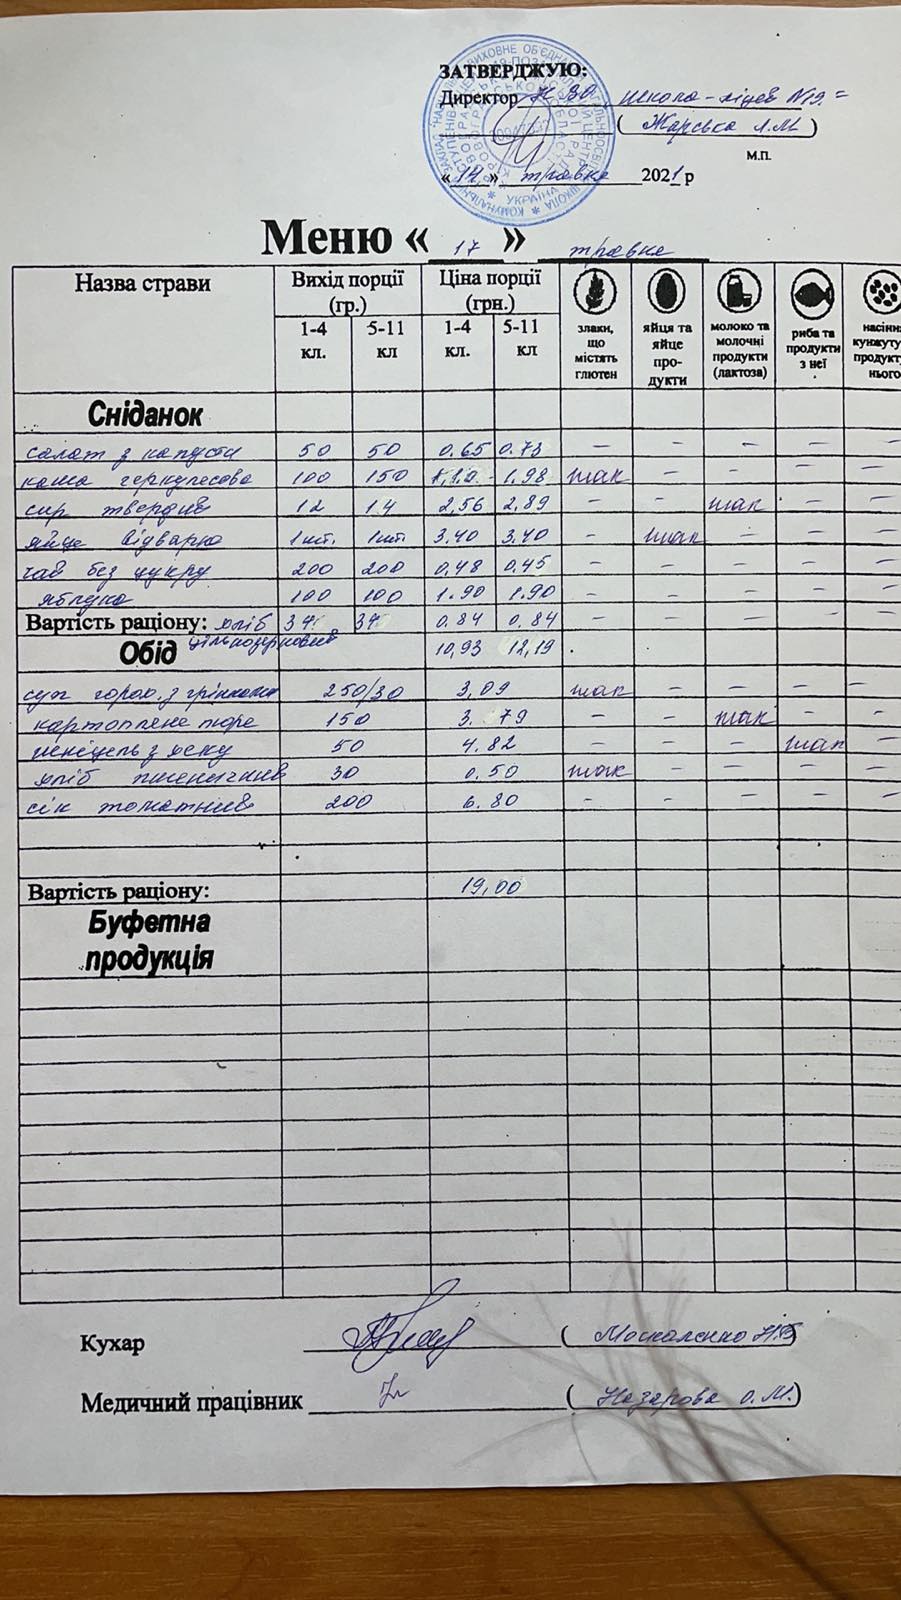 ЗАТВЕРДЖУЮ:
Директор НВО школа-ліцей №19
( Жарська Л.М )
М.П.
«14» травня 2021 р
Меню « 17 » травня
Назва страви Вихід порції (гр.) Ціна порції (грн.) злаки, що містять глютен яйця та яйце про- дукти молоко та молочні продукти (лактоза) риба та продукти з неї насіння кунжуту продукт нього
1-4 кл. 5-11 кл 1-4 кл. 5-11 кл
Сніданок
салат з капусти 50 50 0.65 0.73 – – – – –
каша геркулесова 100 150 1.10 1.98 так – – – –
сир твердий 12 14 2,56 2,89 – – так – –
яйце відварне 1шт. 1шт. 3.40 3.40 – так – – –
чай без цукру 200 200 0,48 0,45 – – – – –
яблуко 100 100 1.90 1.90 – – – – –
Вартість раціону: хліб 34 34 0.84 0,84 – – – – –
цільнозерновий
Обід 10,93 12,19
суп горох. з грінками 250/30 3,09 так – – – –
картопляне пюре 150 3.79 – – так – –
шніцель з хеку 50 4.82 – – – так –
хліб пшеничний 30 0.50 так – – – –
сік томатний 200 6.80 – – – – –
Вартість раціону: 19,00
Буфетна
продукція
Кухар ( Москаленко )
Медичний працівник ( Назарова О.М. )